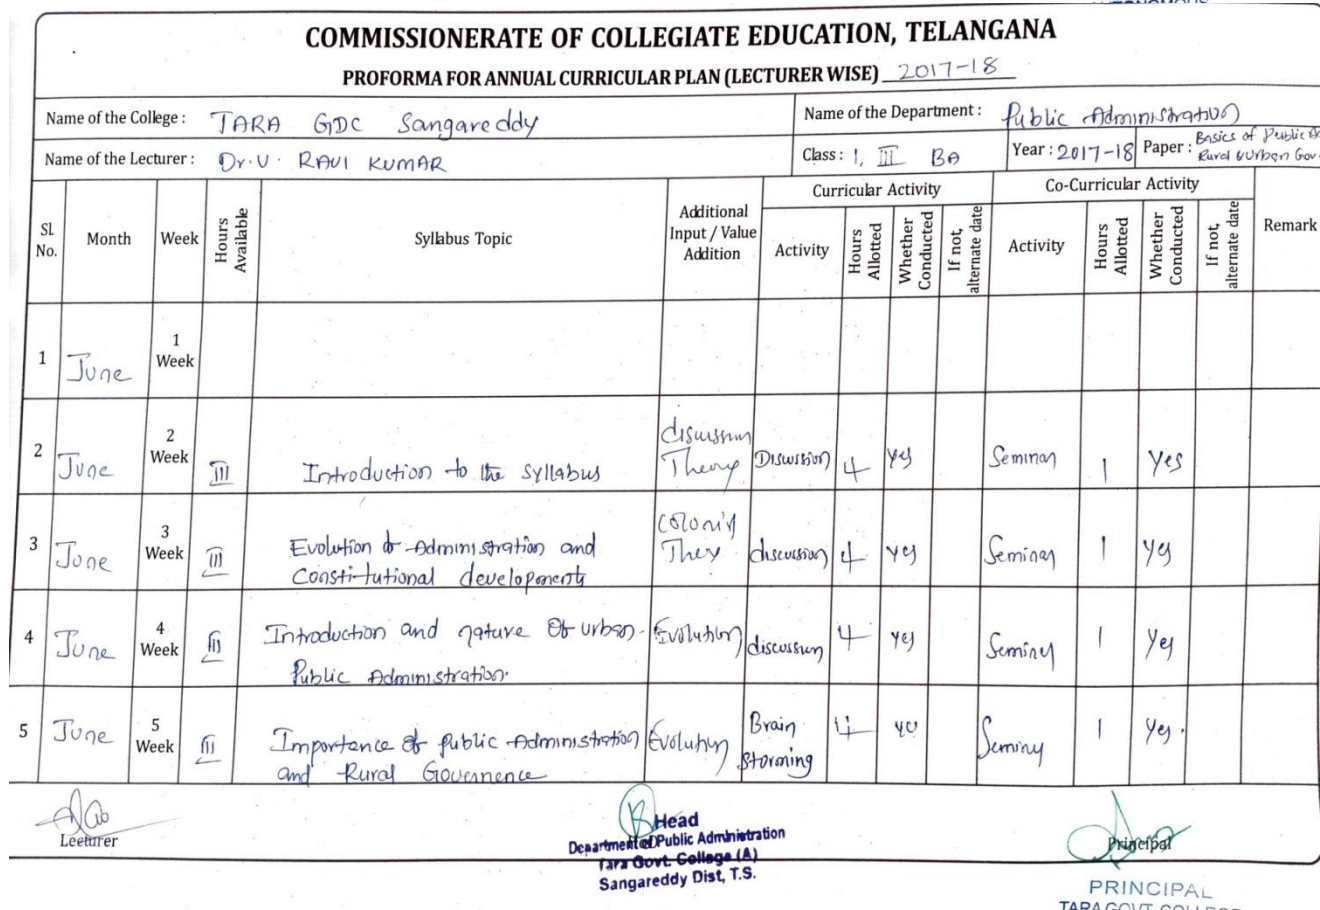 AUTONOMOUS
COMMISSIONERATE OF COLLEGIATE EDUCATION, TELANGANA
PROFORMA FOR ANNUAL CURRICULAR PLAN (LECTURER WISE) 2017-18
Name of the College : TARA GDC Sangareddy
Name of the Department : Public Administration
Name of the Lecturer : Dr. U. RAVI KUMAR
Class : I, III BA
Year : 2017-18
Paper : Basics of Public Ad
Rural & Urban Gov
Sl. No.
Month
Week
Hours Available
Syllabus Topic
Additional Input / Value Addition
Curricular Activity
Activity
Hours Allotted
Whether Conducted
If not, alternate date
Co-Curricular Activity
Activity
Hours Allotted
Whether Conducted
If not, alternate date
Remark
1 June 1 Week
2 June 2 Week III Introduction to the Syllabus discussion Theory Discussion 4 yes Seminar 1 Yes
3 June 3 Week III Evolution of Administration and
Constitutional developments discussion 4 yes Seminar 1 Yes
4 June 4 Week III Introduction and nature of urban Evolution discussion 4 yes Seminar 1 Yes
Public Administration.
5 June 5 Week III Importance of Public Administration Evolution Brain Storming 4 Seminar 1 Yes.
and Rural Governence
Lecturer
Head
Department of Public Administration
Tara Govt. College (A)
Sangareddy Dist, T.S.
Principal
PRINCIPAL
TARA GOVT COLLEGE